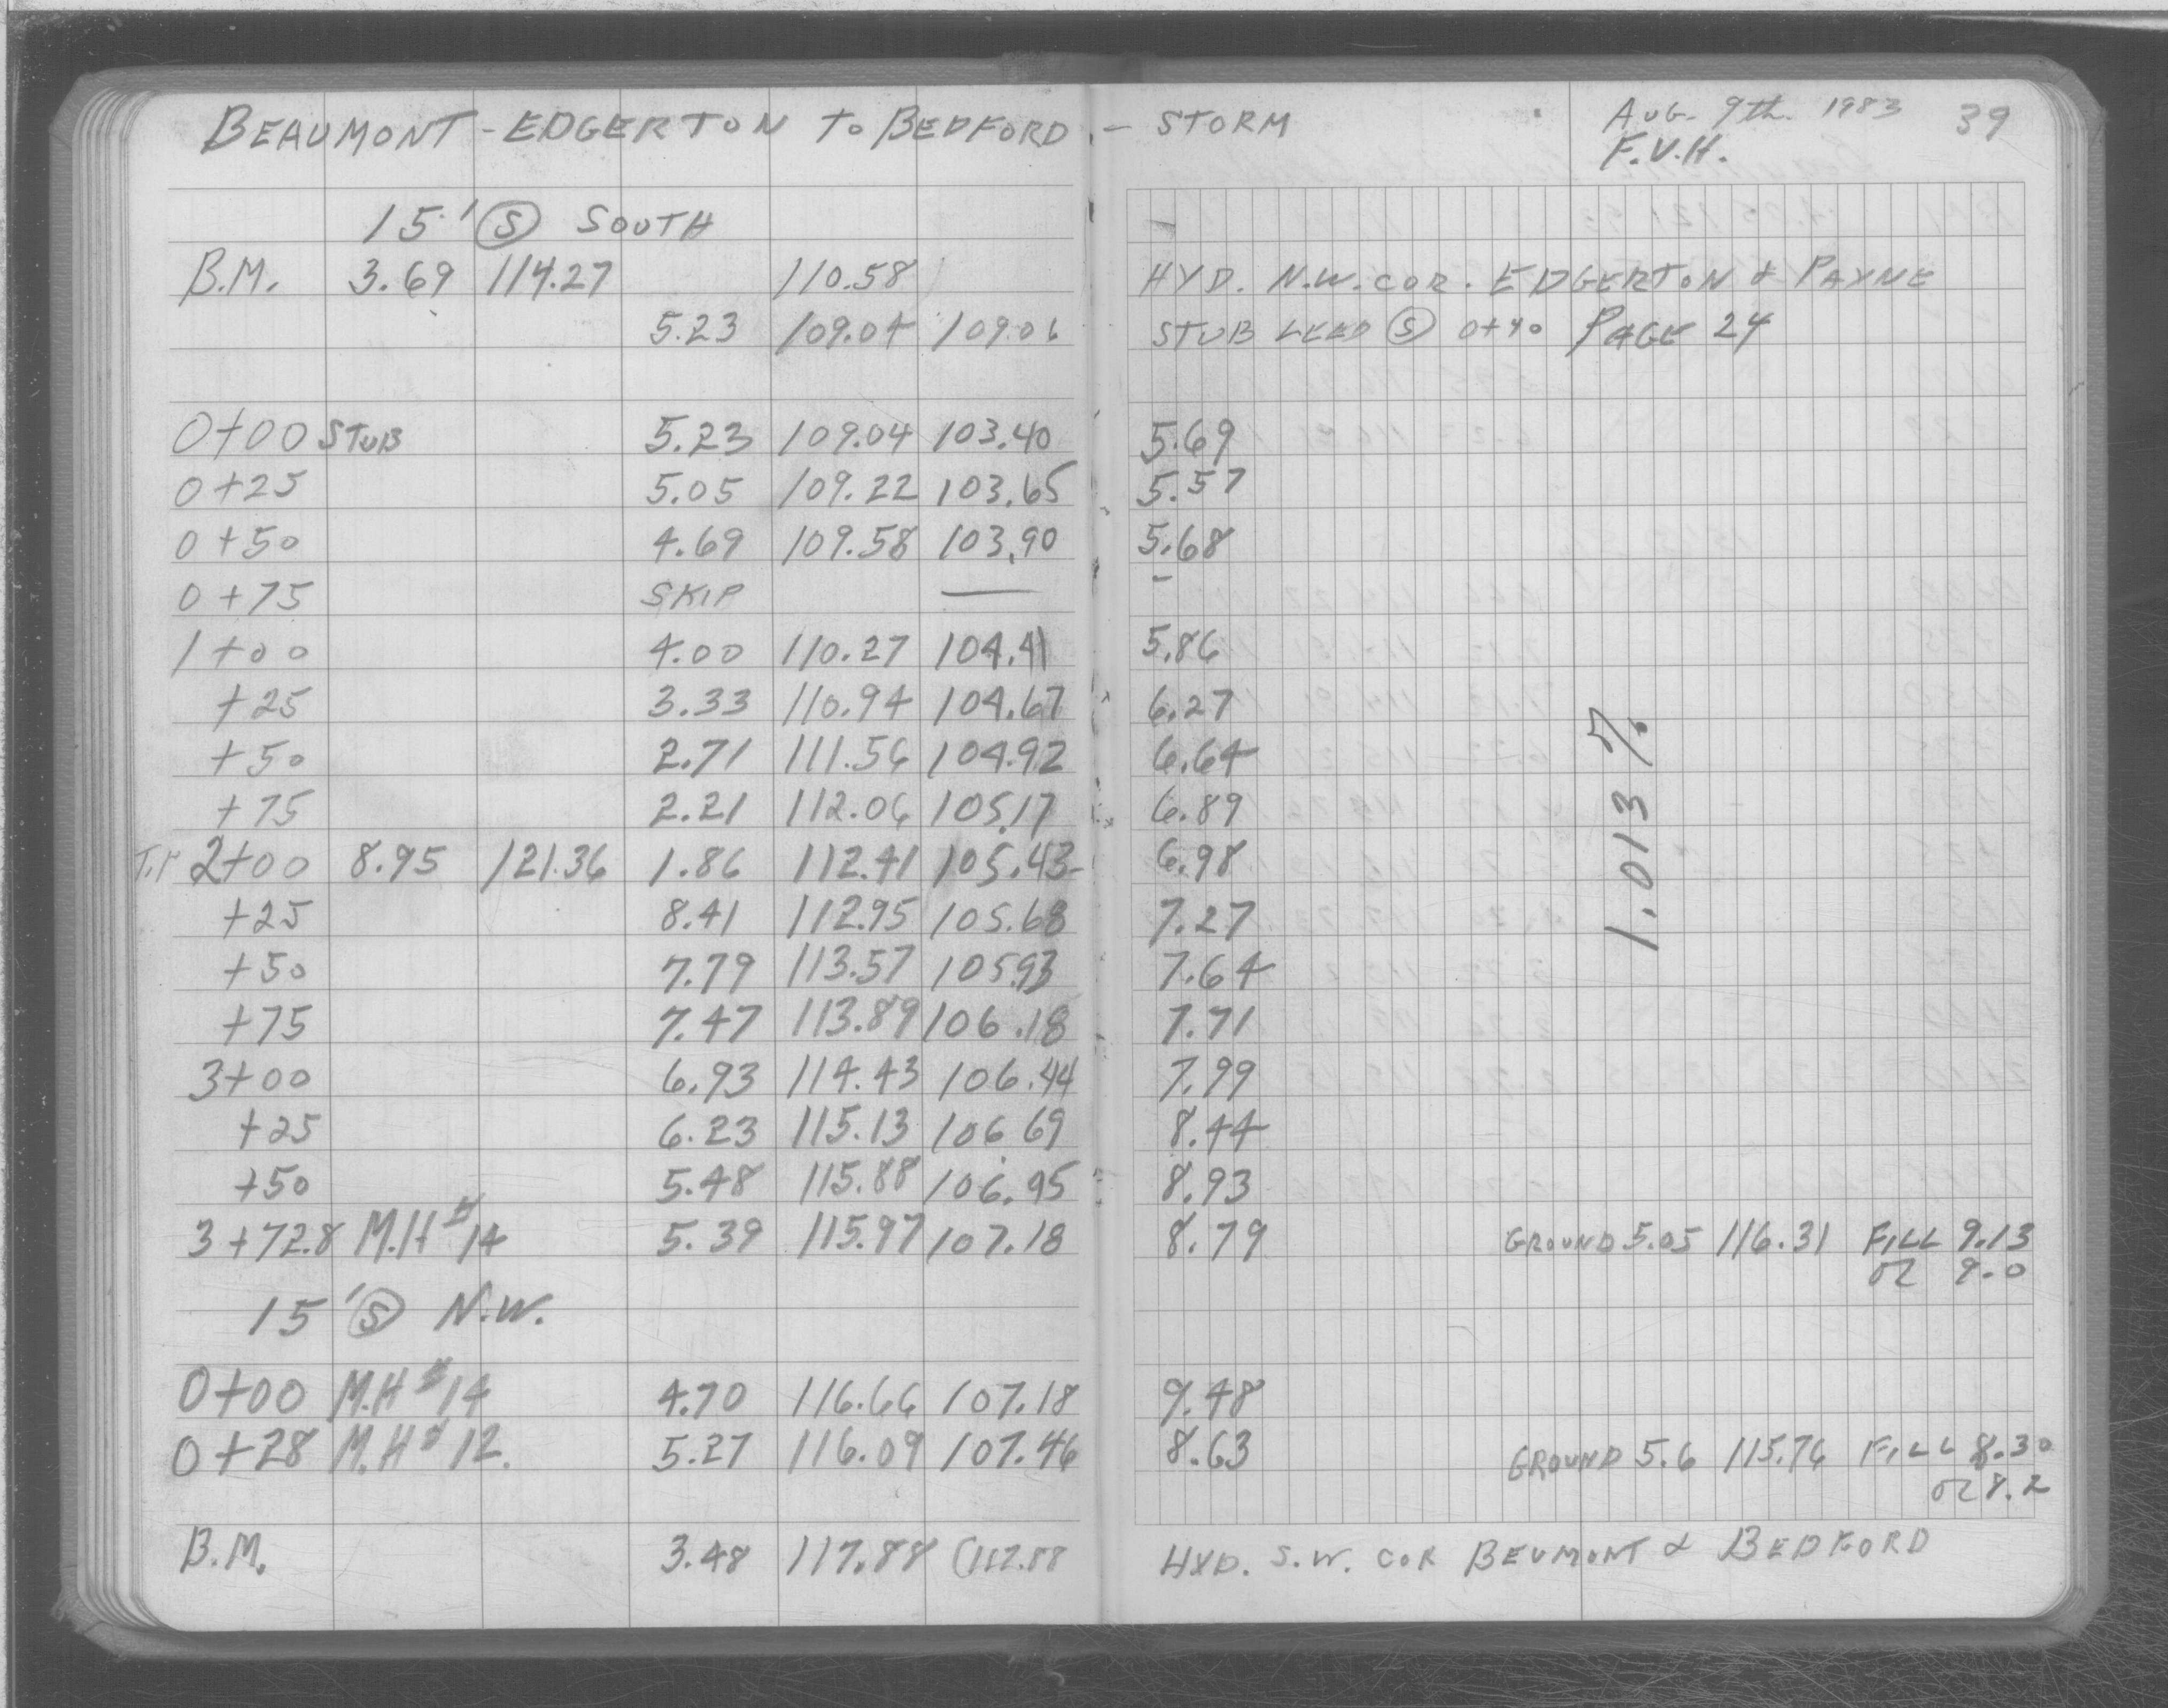 BEAUMONT - EDGERTON TO BEDFORD - STORM AUG. 9th. 1983 39
F.V.H.
15' Ⓢ SOUTH
B.M. 3.69 114.27 110.58 HYD. N.W. COR. EDGERTON & PAYNE
5.23 109.04 109.06 STUB Ⓢ 0+40 PAGE 24
0+00 STUB 5.23 109.04 103.40 5.69
0+25 5.05 109.22 103.65 5.57
0+50 4.69 109.58 103.90 5.68
0+75 SKIP — -
1+00 4.00 110.27 104.41 5.86
+25 3.33 110.94 104.67 6.27
+50 2.71 111.56 104.92 6.64
+75 2.21 112.06 105.17 6.89
T.P 2+00 8.95 121.36 1.86 112.41 105.43 6.98
+25 8.41 112.95 105.68 7.27
+50 7.79 113.57 105.93 7.64
+75 7.47 113.89 106.18 7.71
3+00 6.93 114.43 106.44 7.99
+25 6.23 115.13 106.69 8.44
+50 5.48 115.88 106.95 8.93
3+72.8 M.H #14 5.39 115.97 107.18 8.79 GROUND 5.05 116.31 FILL 9.13
or 9.0
15' Ⓢ N.W.
0+00 M.H #14 4.70 116.66 107.18 9.48
0+28 M.H # 12. 5.27 116.09 107.46 8.63 GROUND 5.6 115.76 FILL 8.30
or 8.2
B.M. 3.48 117.88 (117.88 HYD. S.W. COR BEUMONT & BEDFORD
1.013 %